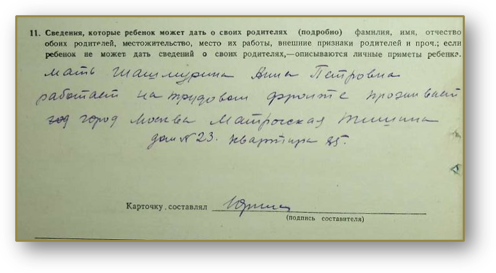 11. Сведения, которые ребенок может дать о своих родителях (подробно) фамилия, имя, отчество
обоих родителей, местожительство, место их работы, внешние признаки родителей и проч.; если
ребенок не может дать сведений о своих родителях,—описываются личные приметы ребенка.
Мать Анна Петровна
работает на трудовом фронте проживает
город Москва Матросская тишина
дом N 23. квартира 25.
Карточку составлял
(подпись составителя)